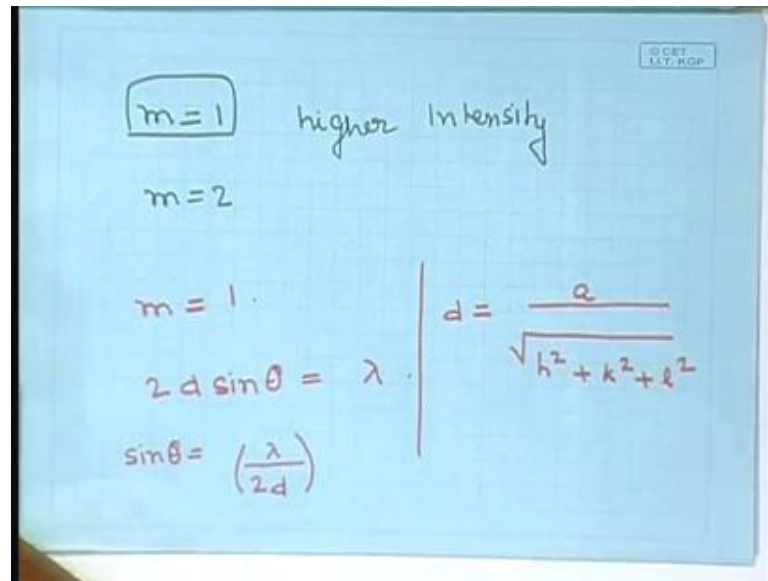 © CET
I.I.T. KGP
m = 1 higher Intensity
m = 2
m = 1.
2 d sin θ = λ .
sin θ = (λ / 2d)
d = a / √h² + k² + l²